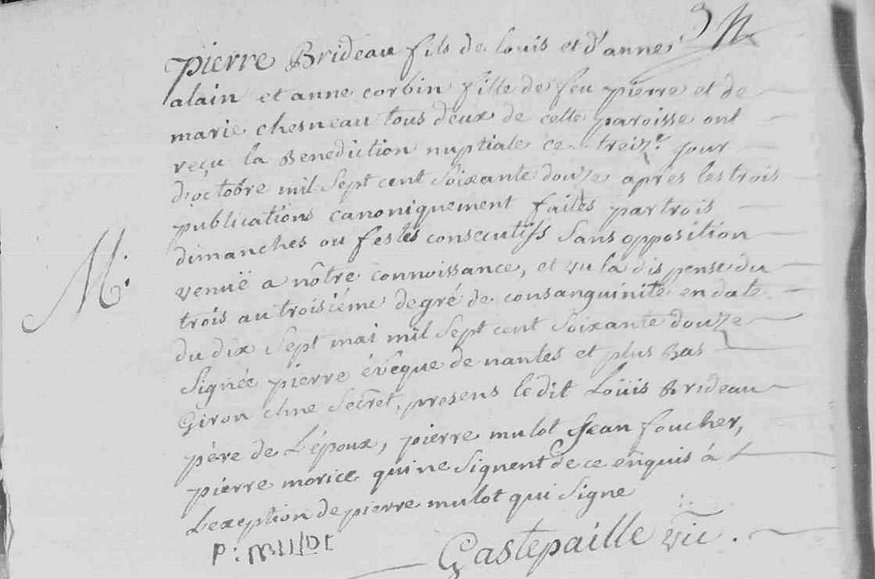 pierre Brideau fils de louis et d'anne
alain et anne corbin fille de feu pierre et de
marie chesneau tous deux de cette paroisse ont
reçu la Benediction nuptiale ce treize. jour
d'octobre mil sept cent soixante douze après les trois
publications canoniquement faites par trois
dimanches ou festes consecutifs sans opposition
venuë a nôtre connoissance, et vu la dispense du
trois au troisiéme degré de consanguinité en date
du dix sept mai mil sept cent soixante douze
signée pierre évêque de nantes et plus bas
Giron chne secret, presens le dit Loüis Brideau
père de L'époux, pierre mulot Jean foucher,
pierre morice qui ne signent de ce enquis à
L'exeption de pierre mulot qui signe
M:
P: mulot
Gastepaille vic.